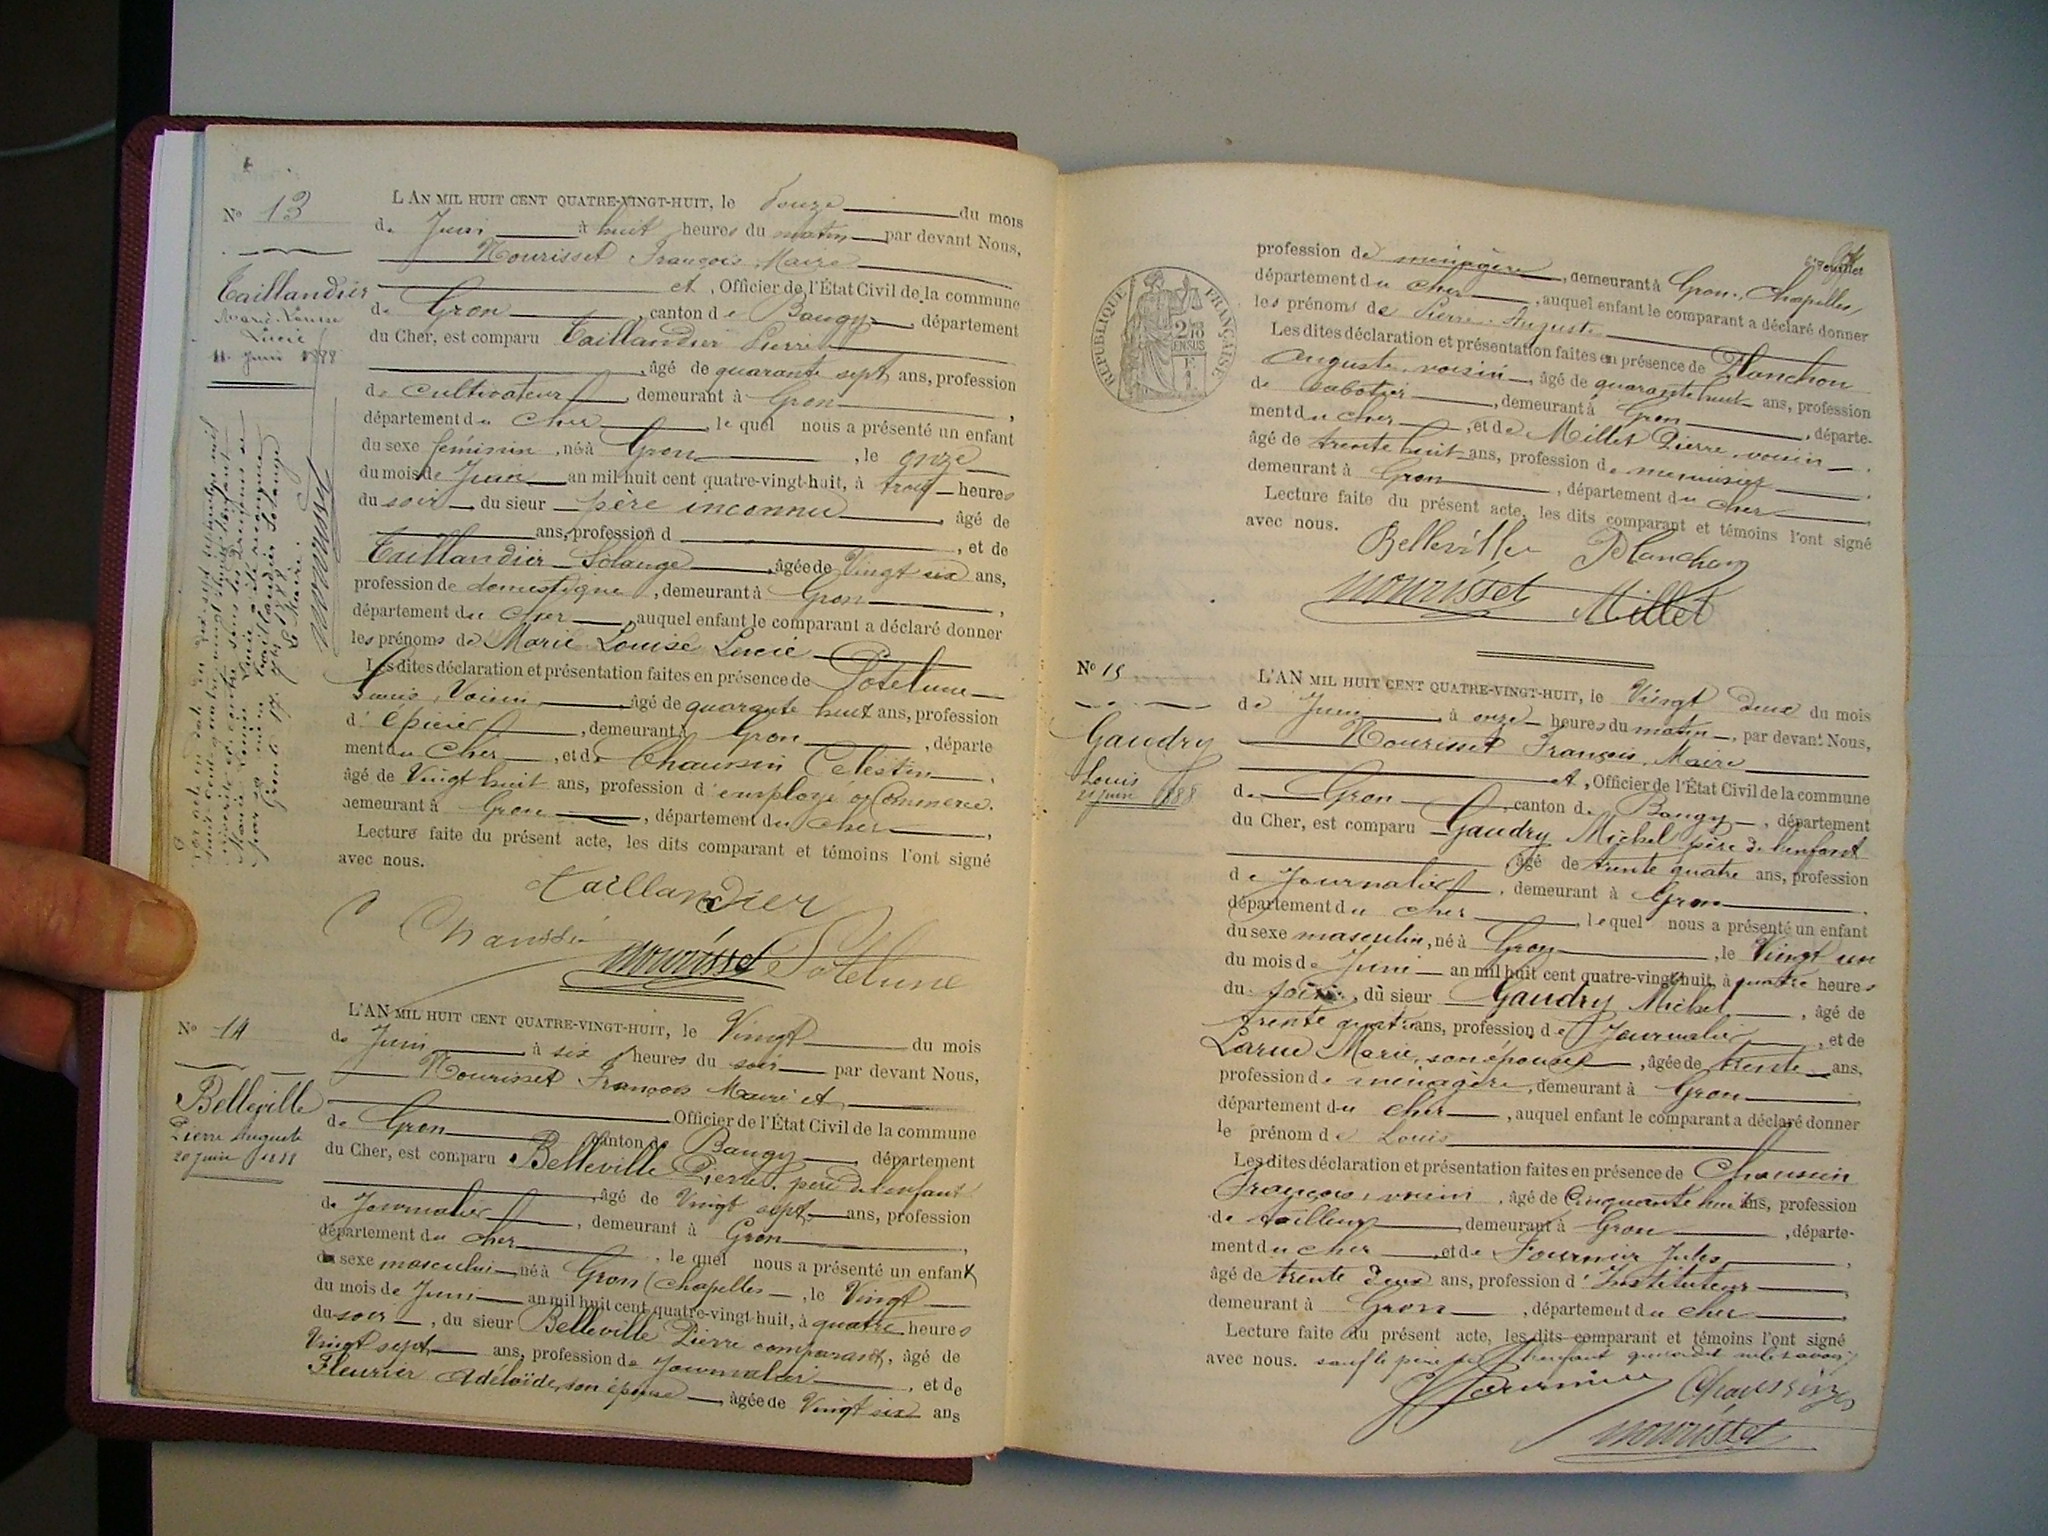 Nº 13
Taillandier
Marie Louise
Lucie
11 Juin 1888
L'AN MIL HUIT CENT QUATRE-VINGT-HUIT, le Douze du mois
de Juin à huit heures du matin par devant Nous,
Nourisset François Maire
et, Officier de l'État Civil de la commune
de Gron, canton de Baugy, département
du Cher, est comparu Taillandier Pierre
, âgé de quarante sept ans, profession
de cultivateur, demeurant à Gron,
département du Cher, le quel nous a présenté un enfant
du sexe féminin, né à Gron, le onze
du mois de Juin an mil huit cent quatre-vingt-huit, à trois heures
du soir, du sieur père inconnu, âgé de
ans, profession d, et de
Taillandier Solange, âgée de Vingt six ans,
profession de domestique, demeurant à Gron,
département du Cher, auquel enfant le comparant a déclaré donner
les prénoms de Marie Louise Lucie
Les dites déclaration et présentation faites en présence de Potelune
voisin, âgé de quarante huit ans, profession
d'épicier, demeurant à Gron, départe
ment du Cher, et de Chaussin Celestin,
âgé de Vingt huit ans, profession d'employé de Commerce.
demeurant à Gron, département du Cher,
Lecture faite du présent acte, les dits comparant et témoins l'ont signé
avec nous.
Taillandier
C Chaussin Nourisset Potelune
Nº 14
Belleville
Pierre Auguste
20 Juin 1888
L'AN MIL HUIT CENT QUATRE-VINGT-HUIT, le Vingt du mois
de Juin à six heures du soir par devant Nous,
Nourisset François Maire et
Officier de l'État Civil de la commune
de Gron canton de Baugy, département
du Cher, est comparu Belleville Pierre, père de l'enfant
, âgé de Vingt sept ans, profession
de Journalier, demeurant à Gron,
département du Cher, le quel nous a présenté un enfant
du sexe masculin, né à Gron (Chapelles, le Vingt
du mois de Juin an mil huit cent quatre-vingt-huit, à quatre heures
du soir, du sieur Belleville Pierre comparant, âgé de
Vingt sept ans, profession de Journalier, et de
Fleurier Adélaïde, son épouse, âgée de Vingt six ans
profession de ménagère, demeurant à Gron, Chapelles,
département du Cher, auquel enfant le comparant a déclaré donner
les prénoms de Pierre Auguste
Les dites déclaration et présentation faites en présence de Planchon
Auguste, voisin, âgé de quarante huit ans, profession
de sabotier, demeurant à Gron, départe-
ment du Cher, et de Millet Pierre, voisin,
âgé de trente huit ans, profession de menuisier,
demeurant à Gron, département du Cher.
Lecture faite du présent acte, les dits comparant et témoins l'ont signé
avec nous.
Belleville Planchon
Nourisset Millet
RÉPUBLIQUE FRANÇAISE
Nº 15
Gaudry
Louis
21 Juin 1888
L'AN MIL HUIT CENT QUATRE-VINGT-HUIT, le Vingt Deux du mois
de Juin à onze heures du matin, par devant Nous,
Nourisset François, Maire
et, Officier de l'État Civil de la commune
de Gron canton de Baugy, département
du Cher, est comparu Gaudry Michel père de l'enfant
âgé de trente quatre ans, profession
de Journalier, demeurant à Gron,
département du Cher, le quel nous a présenté un enfant
du sexe masculin, né à Gron, le Vingt un
du mois de Juin an mil huit cent quatre-vingt-huit, à quatre heures
du soir, du sieur Gaudry Michel, âgé de
trente quatre ans, profession de Journalier, et de
Larue Marie, son épouse, âgée de trente ans,
profession de ménagère, demeurant à Gron,
département du Cher, auquel enfant le comparant a déclaré donner
le prénom de Louis
Les dites déclaration et présentation faites en présence de Chaussin
François, voisin, âgé de Cinquante huit ans, profession
de tailleur, demeurant à Gron, départe-
ment du Cher, et de Fournier Jules,
âgé de trente deux ans, profession d'Instituteur,
demeurant à Gron, département du Cher
Lecture faite du présent acte, les dits comparant et témoins l'ont signé
avec nous. sauf le père de l'enfant qui a dit ne le savoir
Fournier Chaussin
Nourisset